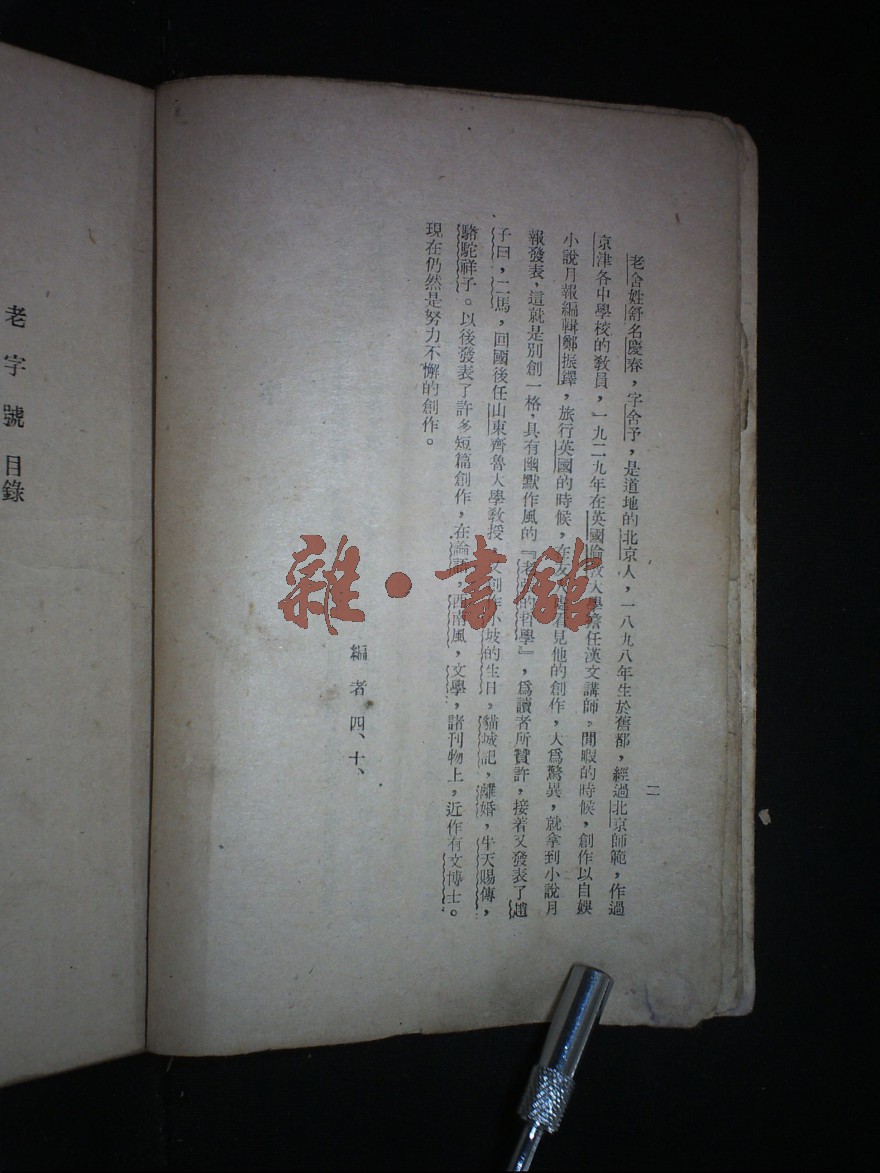 二
老舍姓舒名慶春，字舍予，是道地的北京人，一八九八年生於舊都，經過北京師範，作過
京津各中學校的教員，一九二九年在英國倫敦大學擔任漢文講師。閒暇的時候，創作以自娛
小說月報編輯鄭振鐸，旅行英國的時候，在友見他的創作，大爲驚異，就拿到小說月
報發表，這就是別創一格，具有幽默作風的『老張的哲學』，爲讀者所贊許，接着又發表了趙
子曰，二馬，回國後任山東齊魯大學教授，又創作小坡的生日。貓城記，離婚，牛天賜傳，
駱駝祥子。以後發表了許多短篇創作，在論語，西南風，文學，諸刊物上，近作有文博士。
現在仍然是努力不懈的創作。
編者 四、十、
老字號目錄
雜·書館